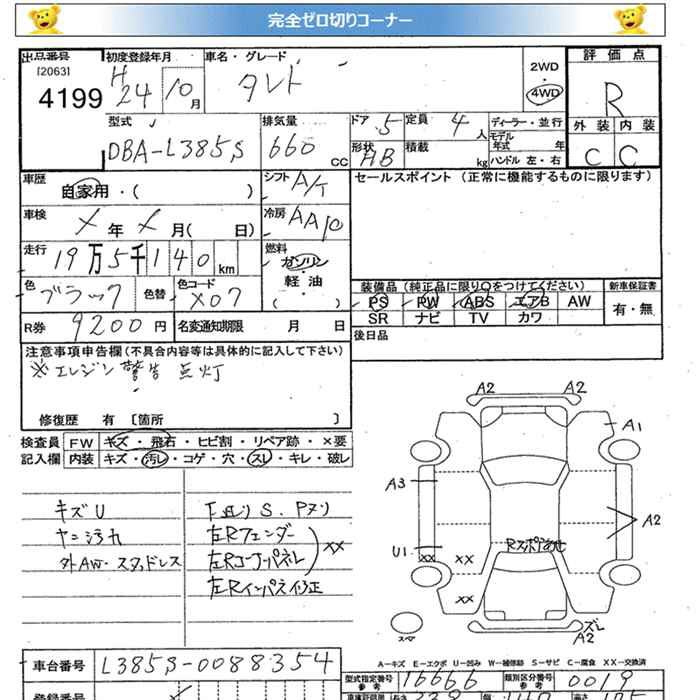 完全ゼロ切りコーナー
出品番号 初度登録年月 車名・グレード 2WD 評価点
[2063] H
4199 24 10月 タント ・ 4WD R
型式 排気量 ドア 5 定員 4人 ディーラー・並行 外装 内装
DBA-L385S 660cc 形状 HB 積載 kg モデル年式 年 ハンドル 左・右 C C
車歴 自家用・( ) シフト A/T セールスポイント (正常に機能するものに限ります)
車検 X年X月( 日) 冷房 AAC
走行 19万5千140km 燃料 ガソリン
色 ブラック 色替 色コード X07 軽油 装備品 (純正品に限り○をつけてください) 新車保証書
PS PW ABS エアB AW 有・無
R券 9200円 名変通知期限 月 日 SR ナビ TV カワ
後日品
注意事項申告欄(不具合内容等は具体的に記入して下さい)
※エンジン警告点灯
修復歴 有 [箇所 ]
検査員 FW キズ・飛石・ヒビ割・リペア跡・×要
記入欄 内装 キズ・汚レ・コゲ・穴・スレ・キレ・破レ
A2 A2
A1
A3
A2
U1 XX XX
XX
Rスポアわせ
スペア
ズレ
A2
キズU
ヤニ汚れ
外AW・スタッドレス
下廻りS.Pヌリ
左Rフェンダー
左Rコーナーパネル XX
左Rインパネ修正
A-キズ E-エクボ U-凹み W-補修跡 S-サビ C-腐食 XX-交換済
車台番号 L385S-0088354 型式指定番号 参考 16666 類別区分番号 参考 0019
登録番号